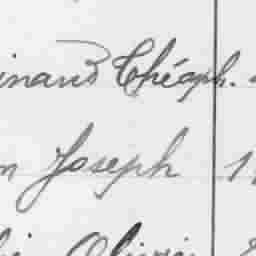 inand Théoph.
n Joseph 1
Olivier